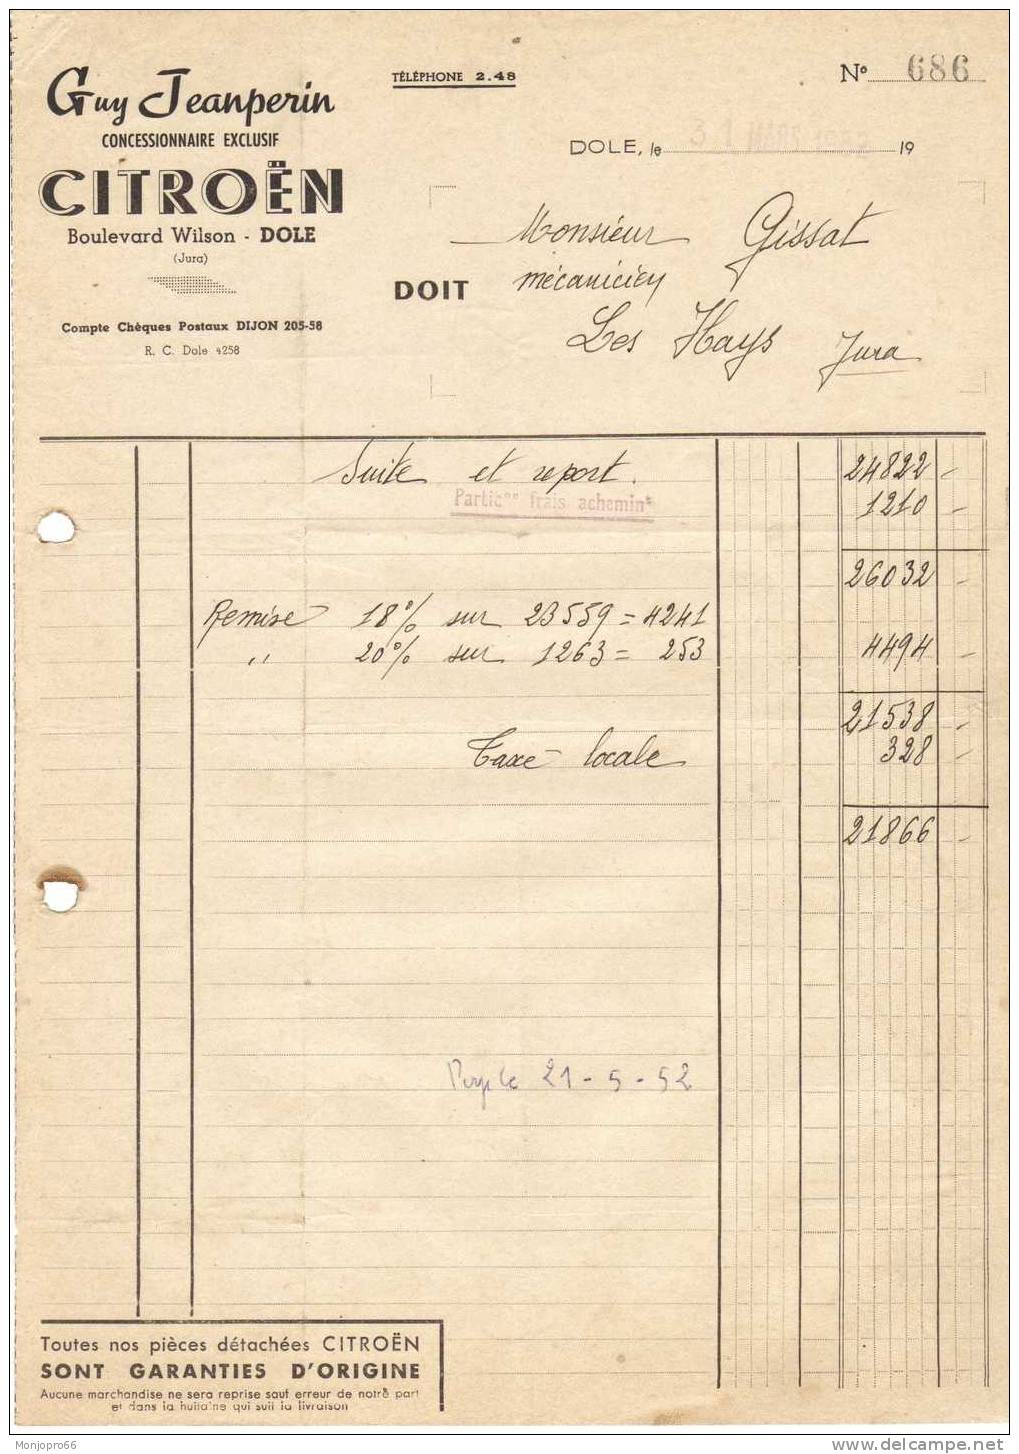 Guy Jeanperin
CONCESSIONNAIRE EXCLUSIF
CITROËN
Boulevard Wilson - DOLE
(Jura)
Compte Chèques Postaux DIJON 205-58
R. C. Dole 4258
TÉLÉPHONE 2.48
Nº 686
DOLE, le 31 MARS 19
DOIT
Monsieur Gissat
mécanicien
Les Hays Jura
Suite et report. 24822 -
Particon frais achemint 1210 -
26032 -
Remise 18% sur 23559 = 4241
" 20% sur 1263 = 253 4494 -
21538 -
Taxe locale 328 -
21866 -
21-5-52
Toutes nos pièces détachées CITROËN
SONT GARANTIES D'ORIGINE
Aucune marchandise ne sera reprise sauf erreur de notre part
et dans la huitaine qui suit la livraison
Monjopro66
www.delcampe.net